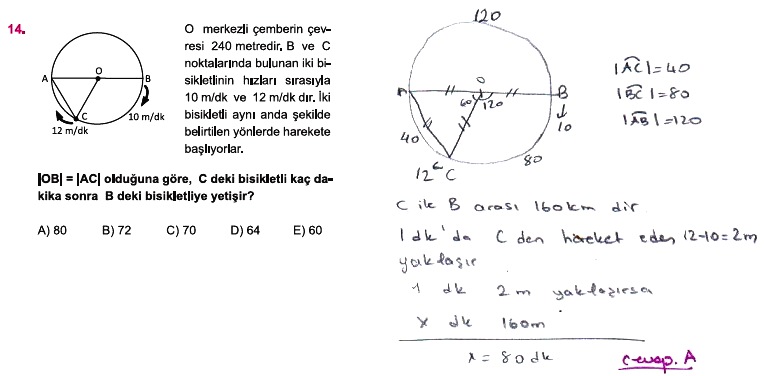 14.
O merkezli çemberin çev-
resi 240 metredir. B ve C
noktalarında bulunan iki bi-
sikletlinin hızları sırasıyla
10 m/dk ve 12 m/dk dır. İki
bisikletli aynı anda şekilde
belirtilen yönlerde harekete
başlıyorlar.
A
O
B
C
12 m/dk
10 m/dk
|OB| = |AC| olduğuna göre, C deki bisikletli kaç da-
kika sonra B deki bisikletliye yetişir?
A) 80 B) 72 C) 70 D) 64 E) 60
120
A
O
B
60 120
10
40
80
12 C
|AC|=40
|BC|=80
|AB|=120
C ile B arası 160km dir
1 dk'da C den hareket eden 12-10=2m
yaklaşır
1 dk 2 m yaklaşırsa
x dk 160m
x = 80 dk
cevap. A